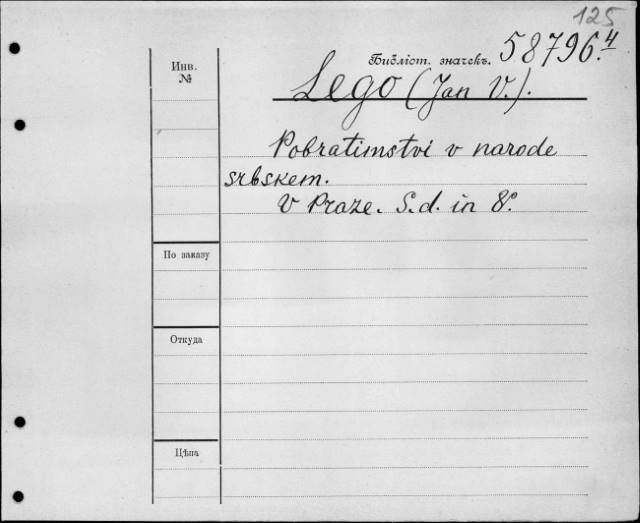 125
Библіот. значекъ. 58796.4
Инв.
№
Lego (Jan V.).
Pobratimstvi v narode
srbskem.
V Praze. S.d. in 8º
По заказу
Откуда
Цѣна